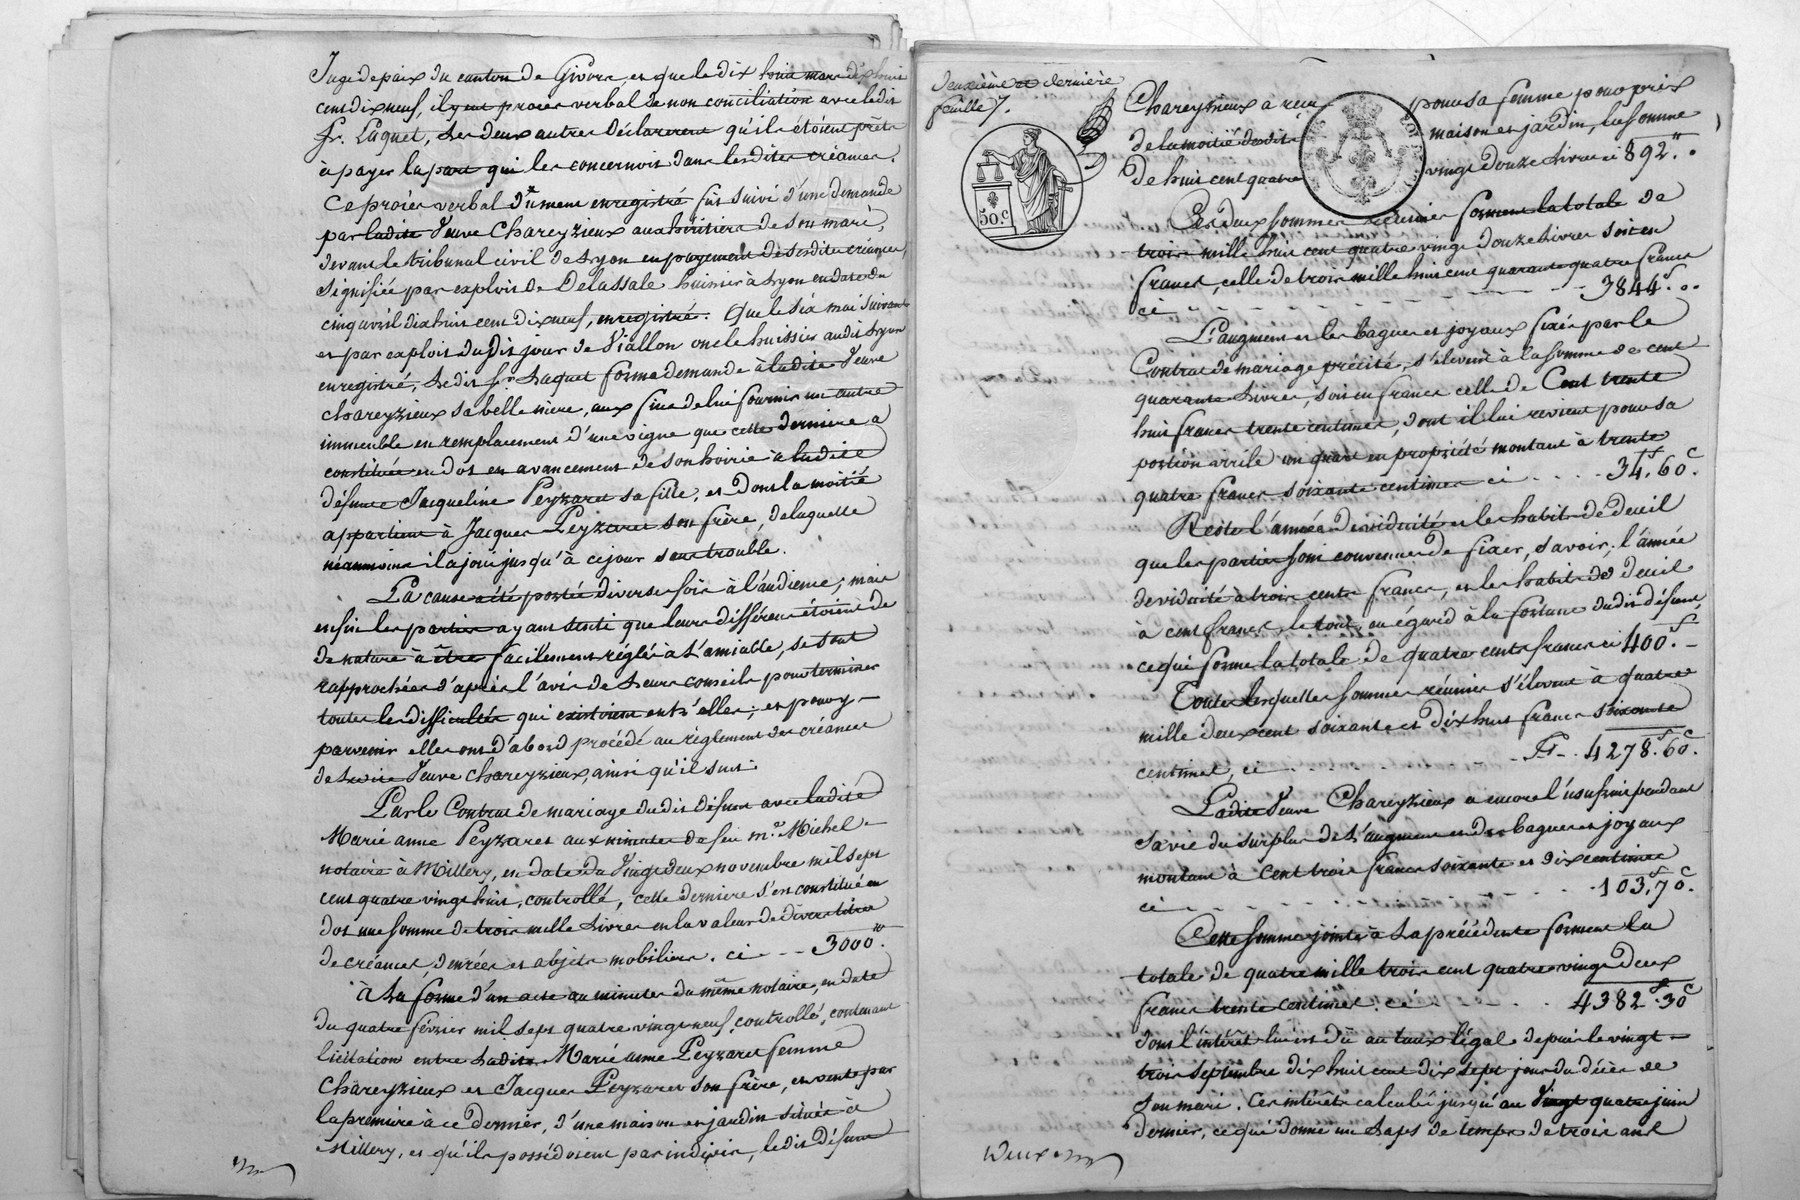 Juge de paix du canton de Givors, et que le dix huit mars dix huit
cent dix neuf, il y eut procès verbal de non conciliation avec ledit
Sr. Luquet, les deux autres déclarerent qu'ils étoient prêts
à payer la part qui les concernoit dans lesdites créances.
Ce procès verbal dument enregistré fut suivi d'une demande
par ladite veuve Chareyzieux aux héritiers de son mari,
devant le tribunal civil de Lyon en payement de sesdites créances,
signifiée par exploit de Delassale huissier à Lyon en date du
cinq avril dix huit cent dix neuf, enregistré. Que le six mai suivant
et par exploit dudit jour de Viallon oncle huissier audit Lyon
enregistré, ledit Sr. Luquet forma demande à ladite veuve
Chareyzieux sa belle mère, aux fins de lui fournir un autre
immeuble en remplacement d'une vigne que cette dernière a
constituée en dot en avancement de son hoirie à ladite
défunte Jacqueline Peyzaret sa fille, et dont la moitié
appartient à Jacques Peyzaret son frère, de laquelle
néanmoins il a joui jusqu'à ce jour sans trouble.
La cause a été portée diverses fois à l'audience; mais
enfin les parties ayant senti que leurs différens étoient de
nature à être facilement réglés à l'amiable, se sont
rapprochées d'après l'avis de leurs conseils pour terminer
toutes les difficultés qui existoient entr'elles; et pour y
parvenir elles ont d'abord procédé au règlement des créances
de ladite veuve Chareyzieux, ainsi qu'il suit:
Par le Contrat de mariage dudit défunt avec ladite
Marie anne Peyzaret aux minutes de feu me. Michel
notaire à Millery, en date du vingt deux novembre mil sept
cent quatre vingt huit, controllé, cette dernière s'est constituée en
dot une somme de trois mille livres en la valeur de divers titres
de créances denrées et objets mobiliers. ci - - - 3000tt.
à la forme d'un acte au minutes du même notaire, en date
du quatre février mil sept quatre vingt neuf, controllé, contenant
licitation entre ladite Marie anne Peyzaret femme
Chareyzieux et Jacques Peyzaret son frère, et vente par
la première à ce dernier, d'une maison et jardin située à
Millery, et qu'ils possédoient par indivis, ledit défunt
deuxième et dernière
feuille 7.
50.c
Chareyzieux a reçu pour sa femme pour prix
de la moitié desdits maison et jardin, la somme
de huit cent quatre vingt douze livres ci 892tt..
Ces deux sommes réunies forment la totale de
trois mille huit cent quatre vingt douze livres soit en
francs, celle de trois mille huit cent quarante quatre francs
ci - - - - - - - - - 3844f...
L'augment et les bagues et joyaux fixés par le
Contrat de mariage précité, s'élevent à la somme de cent
quarante livres, soit en francs celle de Cent trente
huit francs trente centimes, dont il lui revient pour sa
portion virile un quart en propriété montant à trente
quatre francs soixante centimes ci . . . . 34f.60c.
Reste l'année de viduité et les habits de deuil
que les parties sont convenues de fixer, savoir: l'année
de viduité à trois cents francs, et les habits de deuil
à cent francs, le tout eu égard à la fortune dudit défunt,
ce qui forme la totale de quatre cents francs ci 400f. -
Toutes lesquelles sommes réunies s'élevent à quatre
mille deux cent soixante et dix huit francs soixante
centimes, ci - - - - - - - - - F. - . 4278f.60c.
Ladite veuve Chareyzieux a encore l'usufruit pendant
sa vie du surplus de l'augment et des bagues et joyaux
montant à cent trois francs soixante et dix centimes
ci - - - - - - - - - 103f.70c.
Cette somme jointe à la précédente forment la
totale de quatre mille trois cent quatre vingt deux
francs trente centimes. ci - - - - - 4382f.30c
dont l'intérêt lui est dû au taux légal depuis le vingt
trois septembre dix huit cent dix sept jour du décès de
son mari. Ces intérêts calculés jusqu'au vingt quatre juin
dernier, ce qui donne un laps de temps de trois ans